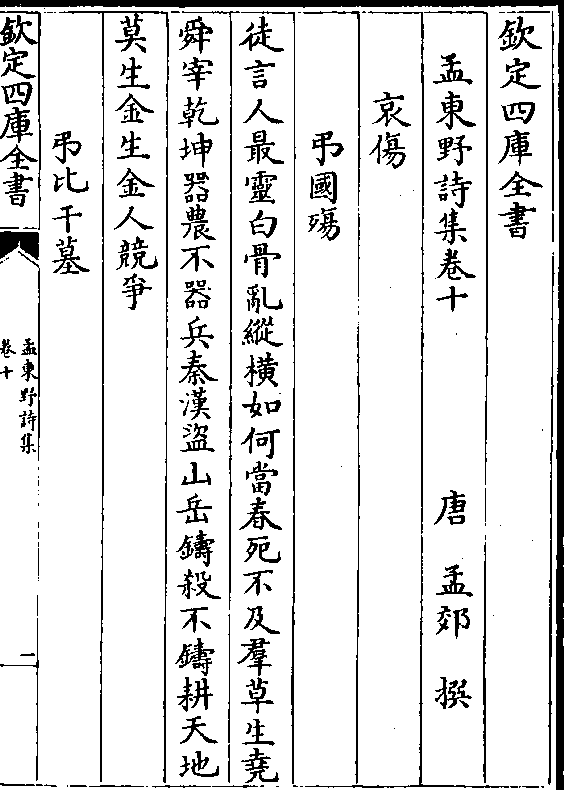 欽定四庫全書
孟東野詩集卷十　唐　孟郊　撰
哀傷
弔國殤
徒言人最靈白骨亂縱橫如何當春死不及羣草生堯
舜宰乾坤器農不器兵秦漢盜山岳鑄殺不鑄耕天地
莫生金生金人競爭
弔比干墓
欽定四庫全書
孟東野詩集
卷十
一